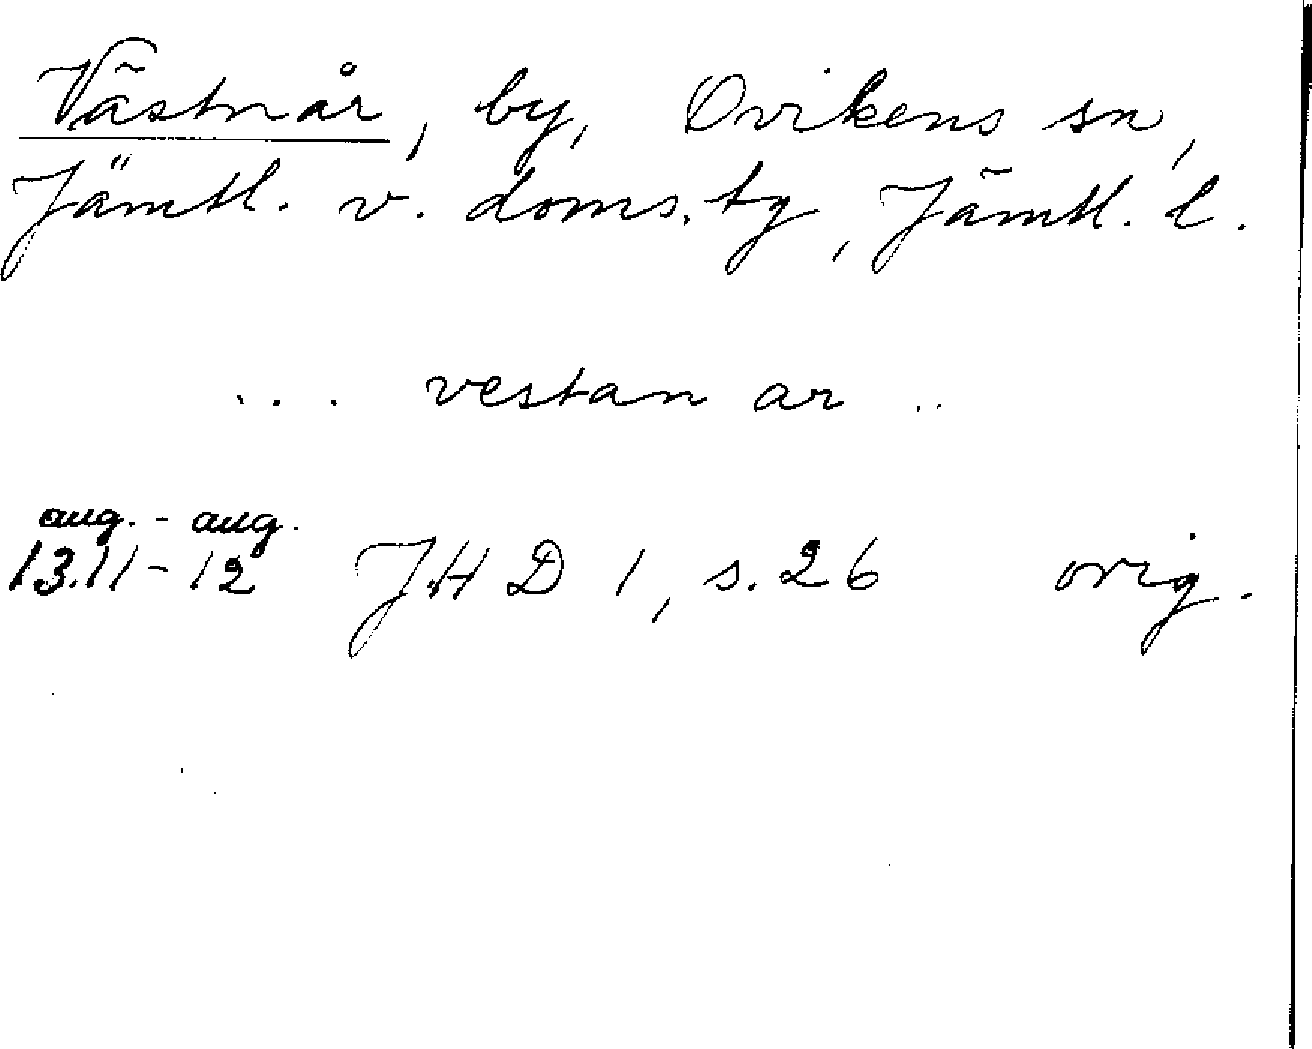 Västnår, by, Ovikens sn,
Jämtl. v. doms.tg, Jämtl. l.
... vestan ar ..
aug. - aug.
13.11 - 12 JHD 1, s. 26 orig.